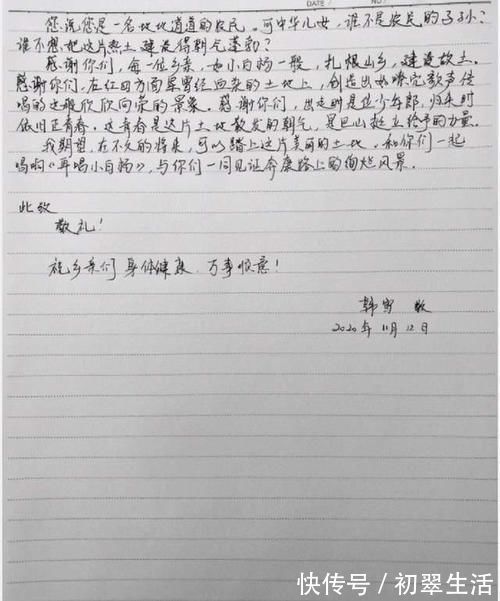 DATE / NO.
您说您是一名地地道道的农民。可中华儿女，谁不是农民的子子孙？
谁不想把这片热土建设得朝气蓬勃？
感谢你们，每一位乡亲，如小白杨一般，扎根山乡，建设故土。
感谢你们，在红四方面军曾经血染的土地上，创造出如嘹亮歌声传
唱的这般欣欣向荣的景象。感谢你们，出走时是些少年郎，归来时
依旧正青春。这青春是这片土地散发的朝气，是巴山挺立给予的力量。
我期望，在不久的将来，可以踏上这片美丽的土地，和你们一起
唱响《再唱小白杨》，与你们一同见证奔康路上的绚烂风景。
此致
敬礼！
祝乡亲们身体健康，万事顺意！
韩雪 敬
2020年11月12日
快传号/初翠生活